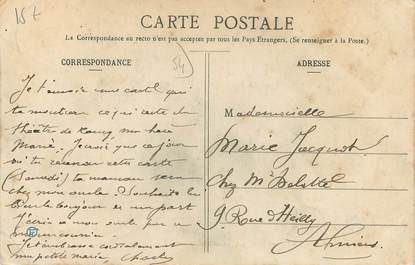 15t
CARTE POSTALE
La Correspondance au recto n'est pas acceptée par tous les Pays Etrangers. (Se renseigner à la Poste.)
CORRESPONDANCE
ADRESSE
54
Je t'envoie une carte qui
te montrera ce qui reste du
théâtre de
Marie. Je crois que ce jour
où tu recevras cette carte
(Samedi) ta maman sera
chez mon oncle. Souhaite lui
bonjour de ma part
J'écris à mon oncle par ce
même courrier.
Je t'embrasse cordialement
ma petite Marie, Charles
Mademoiselle
Marie Jacquot
Chez Mr
9 Rue d'Heilly
Amiens